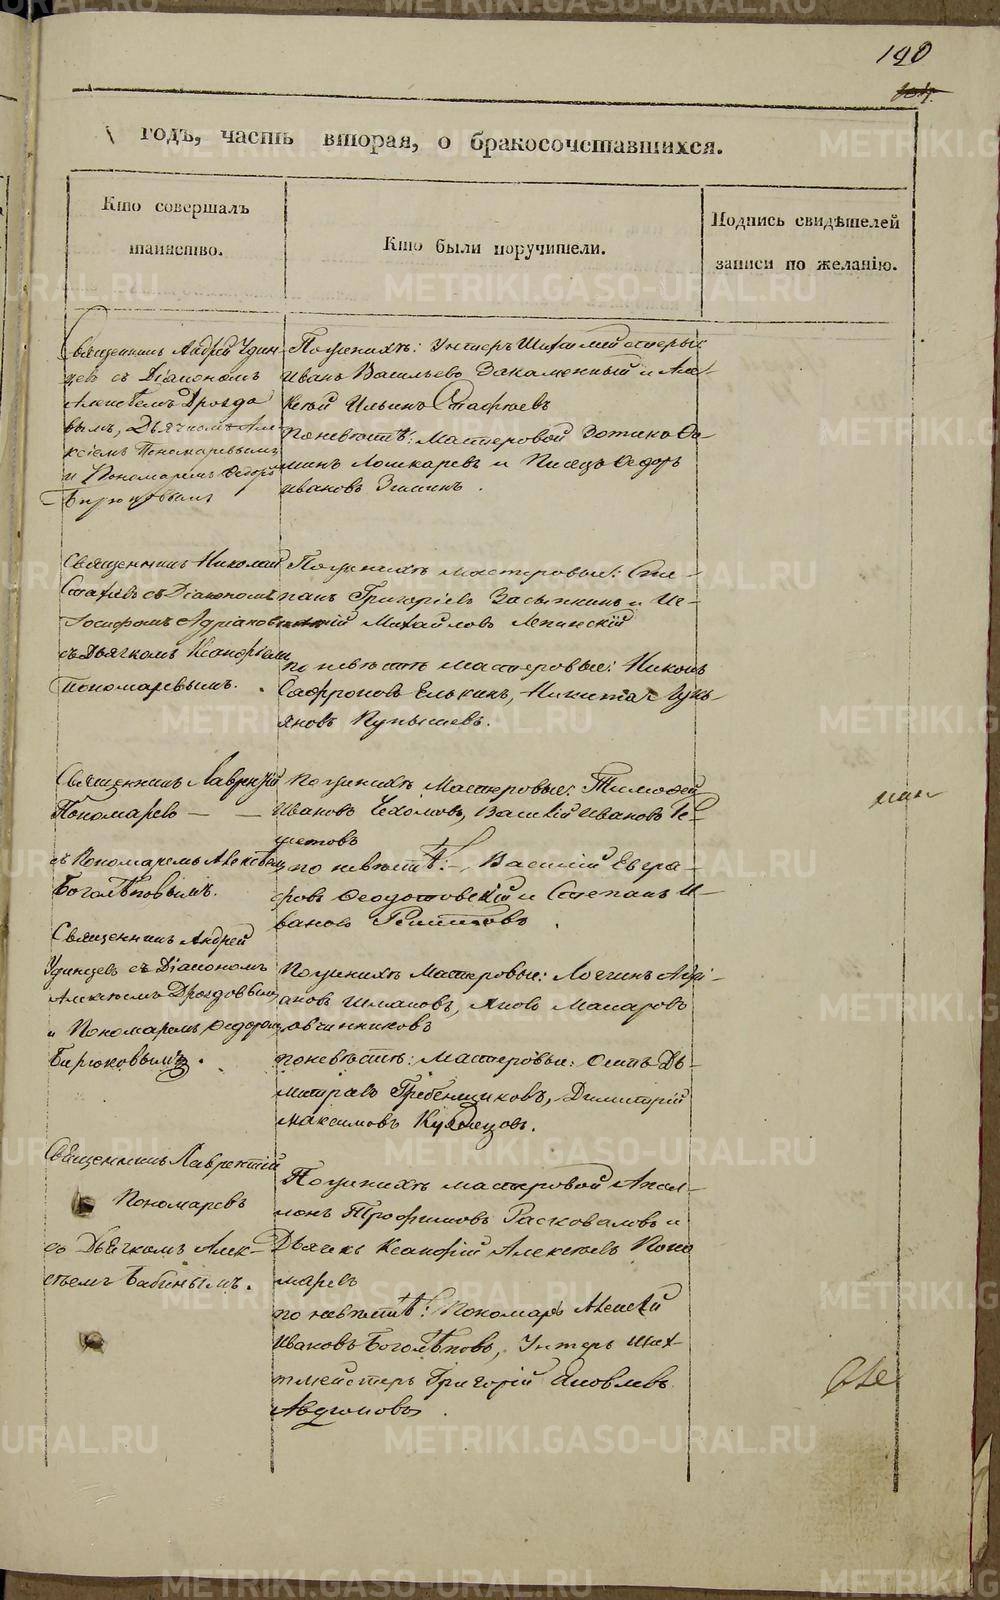 190
годъ, часть вторая, о бракосочетавшихся.
Кто совершалъ
таинство.
Кто были поручители.
Подпись свидѣтелей
записи по желанію.
Священникъ Андрей Удин-
цевъ съ Діакономъ
Алексѣемъ Дроздо
вымъ, Дьячкомъ Але-
ксіемъ Пономаревымъ
и Пономаремъ Ѳедоромъ
Бирюковымъ
По женихѣ: Унтеръ Шихтмейстеры
Иванъ Васильевъ Закаменный и Але-
ксѣй Ильинъ
По невѣстѣ: Мастеровой Зотикъ Ѳо-
минъ Лошкаревъ и Писецъ Ѳедоръ
Ивановъ Зиминъ.
Священникъ Николай
съ Діакономъ
Іосифомъ Адріановымъ
съ Дьячкомъ Ксанфіемъ
Пономаревымъ.
По женихѣ мастеровые: Сте-
панъ Григорьевъ Засыпкинъ и
Михайловъ Ляпинскій
по невѣстѣ мастеровые: Никонъ
Сафроновъ Елькинъ, Никита Лукь-
яновъ Пупышевъ.
Священникъ Лаврентій
Пономаревъ — —
съ Пономаремъ Алексѣемъ
Боголѣповымъ.
По женихѣ Мастеровые: Тимофей
Ивановъ Чехомовъ, Василій Ивановъ Ре-
шетовъ
по невѣстѣ: Василій Евгра-
фовъ Ѳеодотовскій и Степанъ И-
вановъ
Священникъ Андрей
Удинцевъ съ Діакономъ
Алексѣемъ Дроздовымъ
и Пономаремъ Ѳедоромъ
Бирюковымъ.
По женихѣ Мастеровые: Логинъ Адрі-
ановъ Шмаковъ, Яковъ Макаровъ
Овчинниковъ
по невѣстѣ: Мастеровые: Осипъ Дь-
митріевъ Гребенщиковъ, Димитрій
Максимовъ Кузнецовъ.
Священникъ Лаврентій
Пономаревъ
съ Дьячкомъ Алек-
сѣемъ Бабинымъ.
По женихѣ мастеровой Апол-
лонъ Трофимовъ Расковаловъ и
Дьячекъ Ксанфій Алексѣевъ Поно
маревъ
по невѣстѣ: Пономарь Алексѣй
Ивановъ Боголѣповъ, Унтеръ Шах-
тмейстеръ Григорій Яковлевъ
METRIKI.GASO-URAL.RU